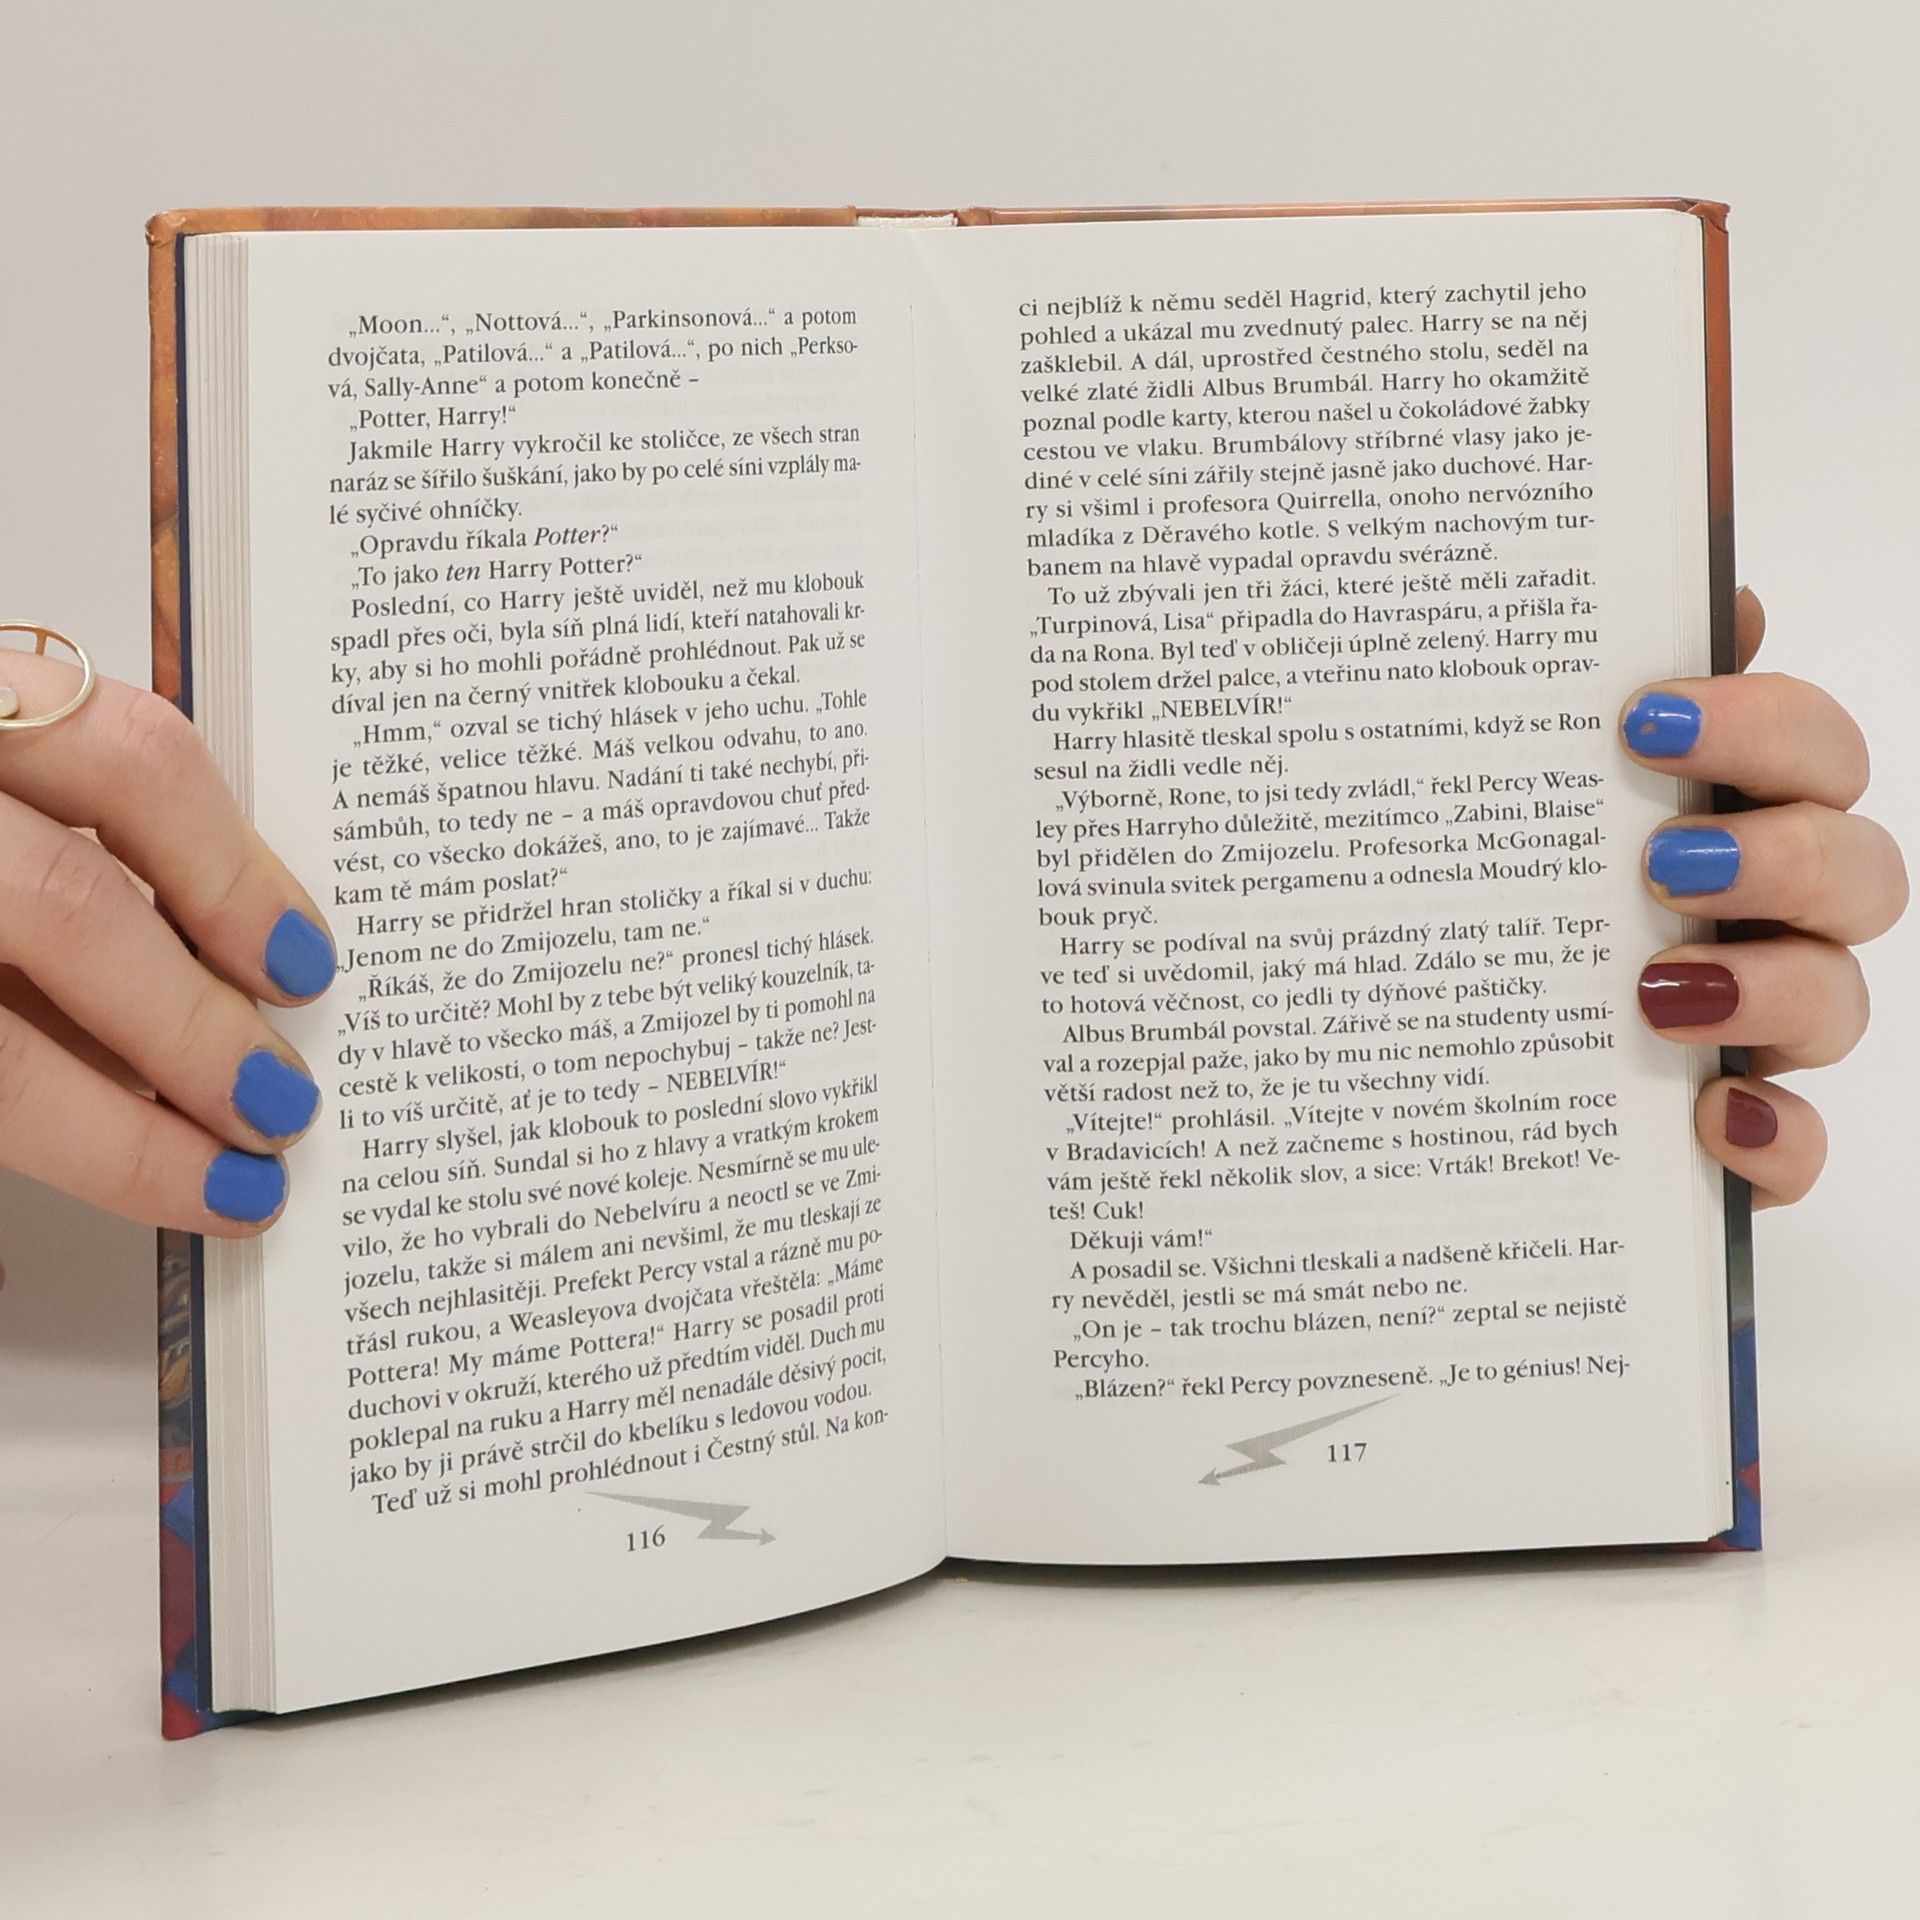 „Moon...“, „Nottová...“, „Parkinsonová...“ a potom
dvojčata, „Patilová...“ a „Patilová...“, po nich „Perkso-
vá, Sally-Anne“ a potom konečně –
„Potter, Harry!“
Jakmile Harry vykročil ke stoličce, ze všech stran
naráz se šířilo šuškání, jako by po celé síni vzplály ma-
lé syčivé ohníčky.
„Opravdu říkala Potter?“
„To jako ten Harry Potter?“
Poslední, co Harry ještě uviděl, než mu klobouk
spadl přes oči, byla síň plná lidí, kteří natahovali kr-
ky, aby si ho mohli pořádně prohlédnout. Pak už se
díval jen na černý vnitřek klobouku a čekal.
„Hmm,“ ozval se tichý hlásek v jeho uchu. „Tohle
je těžké, velice těžké. Máš velkou odvahu, to ano.
A nemáš špatnou hlavu. Nadání ti také nechybí, při-
sámbůh, to tedy ne – a máš opravdovou chuť před-
vést, co všecko dokážeš, ano, to je zajímavé... Takže
kam tě mám poslat?“
Harry se přidržel hran stoličky a říkal si v duchu:
„Jenom ne do Zmijozelu, tam ne.“
„Říkáš, že do Zmijozelu ne?“ pronesl tichý hlásek.
„Víš to určitě? Mohl by z tebe být veliký kouzelník, ta-
dy v hlavě to všecko máš, a Zmijozel by ti pomohl na
cestě k velikosti, o tom nepochybuj – takže ne? Jest-
li to víš určitě, ať je to tedy – NEBELVÍR!“
Harry slyšel, jak klobouk to poslední slovo vykřikl
na celou síň. Sundal si ho z hlavy a vratkým krokem
se vydal ke stolu své nové koleje. Nesmírně se mu ule-
vilo, že ho vybrali do Nebelvíru a neoctl se ve Zmi-
jozelu, takže si málem ani nevšiml, že mu tleskají ze
všech nejhlasitěji. Prefekt Percy vstal a rázně mu po-
třásl rukou, a Weasleyova dvojčata vřeštěla: „Máme
Pottera! My máme Pottera!“ Harry se posadil proti
duchovi v okruží, kterého už předtím viděl. Duch mu
poklepal na ruku a Harry měl nenadále děsivý pocit,
jako by ji právě strčil do kbelíku s ledovou vodou.
Teď už si mohl prohlédnout i Čestný stůl. Na kon-
116
ci nejblíž k němu seděl Hagrid, který zachytil jeho
pohled a ukázal mu zvednutý palec. Harry se na něj
zašklebil. A dál, uprostřed čestného stolu, seděl na
velké zlaté židli Albus Brumbál. Harry ho okamžitě
poznal podle karty, kterou našel u čokoládové žabky
cestou ve vlaku. Brumbálovy stříbrné vlasy jako je-
diné v celé síni zářily stejně jasně jako duchové. Har-
ry si všiml i profesora Quirrella, onoho nervózního
mladíka z Děravého kotle. S velkým nachovým tur-
banem na hlavě vypadal opravdu svérázně.
To už zbývali jen tři žáci, které ještě měli zařadit.
„Turpinová, Lisa“ připadla do Havraspáru, a přišla řa-
da na Rona. Byl teď v obličeji úplně zelený. Harry mu
pod stolem držel palce, a vteřinu nato klobouk oprav-
du vykřikl „NEBELVÍR!“
Harry hlasitě tleskal spolu s ostatními, když se Ron
sesul na židli vedle něj.
„Výborně, Rone, to jsi tedy zvládl,“ řekl Percy Weas-
ley přes Harryho důležitě, mezitímco „Zabini, Blaise“
byl přidělen do Zmijozelu. Profesorka McGonagal-
lová svinula svitek pergamenu a odnesla Moudrý klo-
bouk pryč.
Harry se podíval na svůj prázdný zlatý talíř. Tepr-
ve teď si uvědomil, jaký má hlad. Zdálo se mu, že je
to hotová věčnost, co jedli ty dýňové paštičky.
Albus Brumbál povstal. Zářivě se na studenty usmí-
val a rozepjal paže, jako by mu nic nemohlo způsobit
větší radost než to, že je tu všechny vidí.
„Vítejte!“ prohlásil. „Vítejte v novém školním roce
v Bradavicích! A než začneme s hostinou, rád bych
vám ještě řekl několik slov, a sice: Vrták! Brekot! Ve-
teš! Cuk!
Děkuji vám!“
A posadil se. Všichni tleskali a nadšeně křičeli. Har-
ry nevěděl, jestli se má smát nebo ne.
„On je – tak trochu blázen, není?“ zeptal se nejistě
Percyho.
„Blázen?“ řekl Percy povzneseně. „Je to génius! Nej-
117